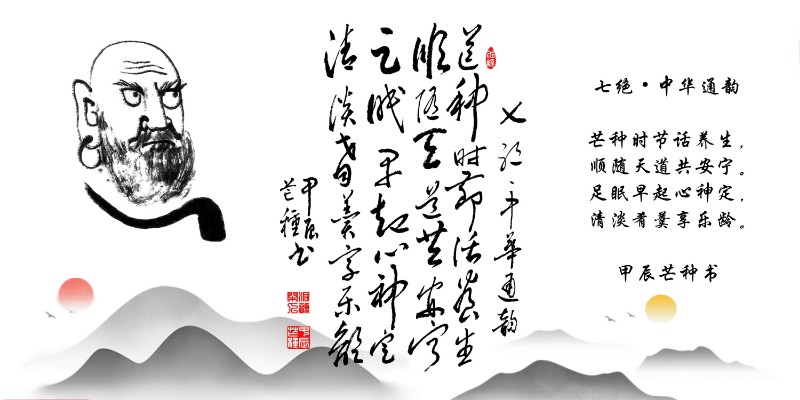 七绝中華通韵
芒种时節话养生
顺随天道共安宁
足眠早起心神定
清淡肴羹享乐龄
甲辰
芒種书
甲辰
芒種
七绝·中华通韵
芒种时节话养生，
顺随天道共安宁。
足眠早起心神定，
清淡肴羹享乐龄。
甲辰芒种书